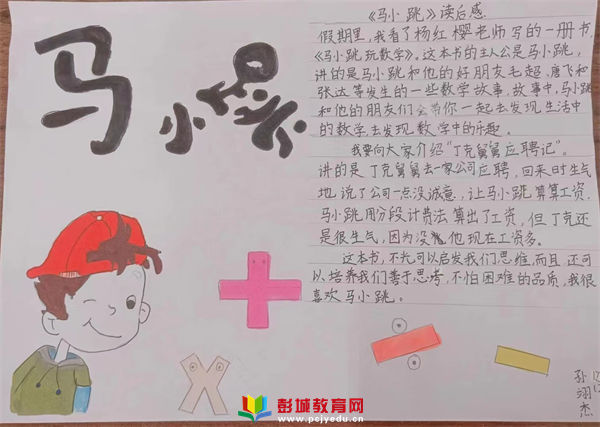 马小跳
《马小跳》读后感
假期里,我看了杨红樱老师写的一册书,
《马小跳玩数学》。这本书的主人公是马小跳,
讲的是马小跳和他的好朋友毛超、唐飞和
张达等发生的一些数学故事,故事中,马小跳
和他的朋友们会带你一起去发现生活中
的数学,去发现数学中的乐趣。
我要向大家介绍“丁克舅舅应聘记”。
讲的是丁克舅舅去一家公司应聘,回来时生气
地说了公司一点没诚意,让马小跳算算工资,
马小跳用分段计费法算出了工资,但丁克还
是很生气,因为没他现在工资多。
这本书,不光可以启发我们思维,而且还可
以培养我们善于思考,不怕困难的品质,我很
喜欢马小跳。
孙翊杰
彭城教育网
www.pcjyedu.cn